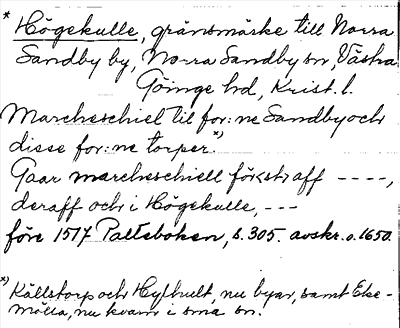 * Högekulle, gränsmärke till Norra
Sandby by, Norra Sandby sn, Västra
Göinge hd, Krist. l.
Marcheschiel til for:ne Sandby och
disse for:ne torper.*)
Gaar marcheschiell förstraff ----,
deraff och i Högekulle, ---
före 1517 Palteboken, s. 305. avskr. o. 1650.
*) Källstorp och Hylhult, nu byar, samt Eke-
mölla, nu kvarn i sma sn.